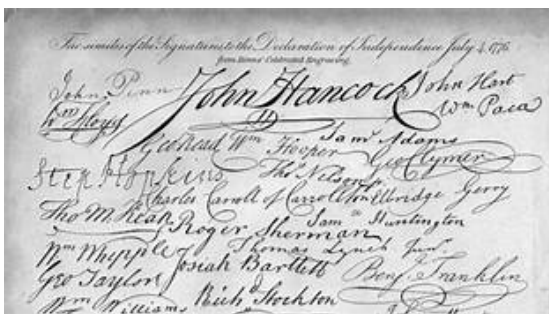 Facsimiles of the Signatures to the Declaration of Independence July 4, 1776.
from Binns' Celebrated Engraving.
John Penn John Hancock John Hart
Wm Floyd Wm Paca
Geo Read Wm Hooper Saml Adams
Geo Clymer
Step Hopkins Thos Nelson jr
Charles Carroll of Carrollton Elbridge Gerry
Tho M:Kean Roger Sherman Saml Huntington
Wm Whipple Thomas Lynch Junr.
Josiah Bartlett Benj Franklin
Geo Taylor
Wm Williams Richd Stockton